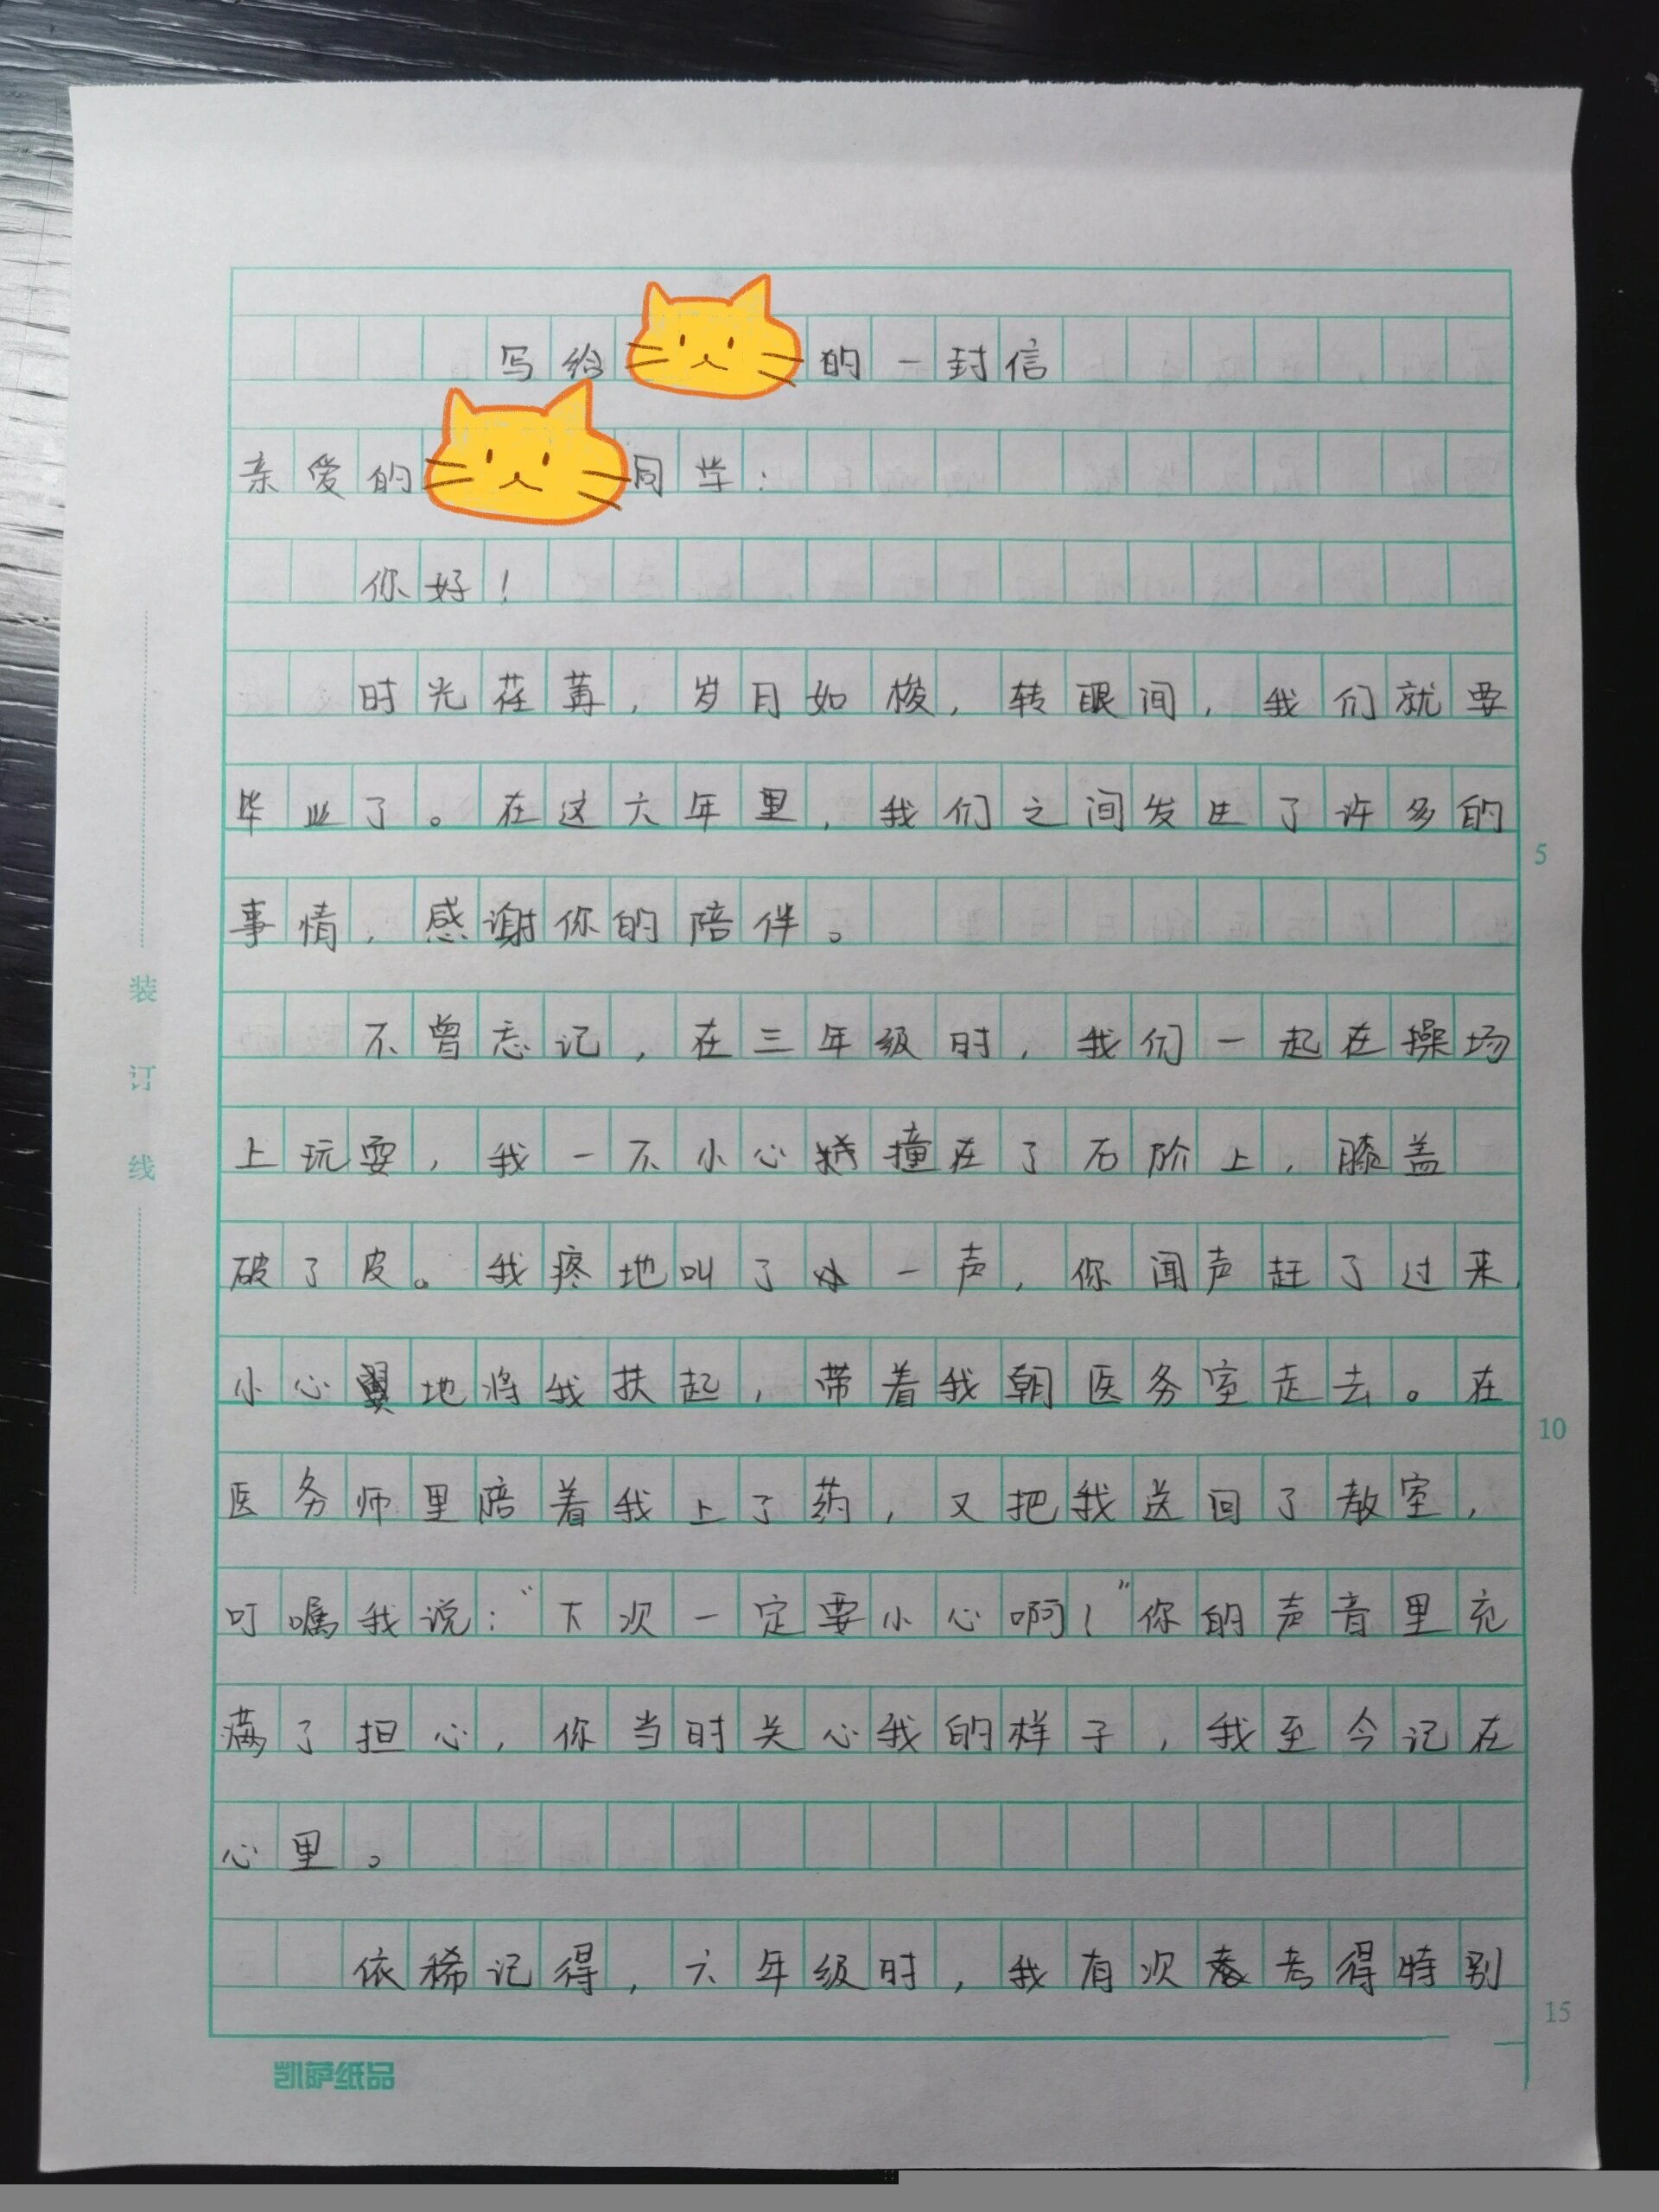 写给的一封信
亲爱的同学:
你好!
时光荏苒,岁月如梭,转眼间,我们就要
毕业了。在这六年里,我们之间发生了许多的
事情,感谢你的陪伴。
不曾忘记,在三年级时,我们一起在操场
上玩耍,我一不小心撞在了石阶上,膝盖
破了皮。我疼地叫了一声,你闻声赶了过来,
小心翼地将我扶起,带着我朝医务室走去。在
医务师里陪着我上了药,又把我送回了教室,
叮嘱我说:“下次一定要小心啊!”你的声音里充
满了担心,你当时关心我的样子,我至今记在
心里。
依稀记得,六年级时,我有次考得特别
装订线
5
10
15
凯萨纸品